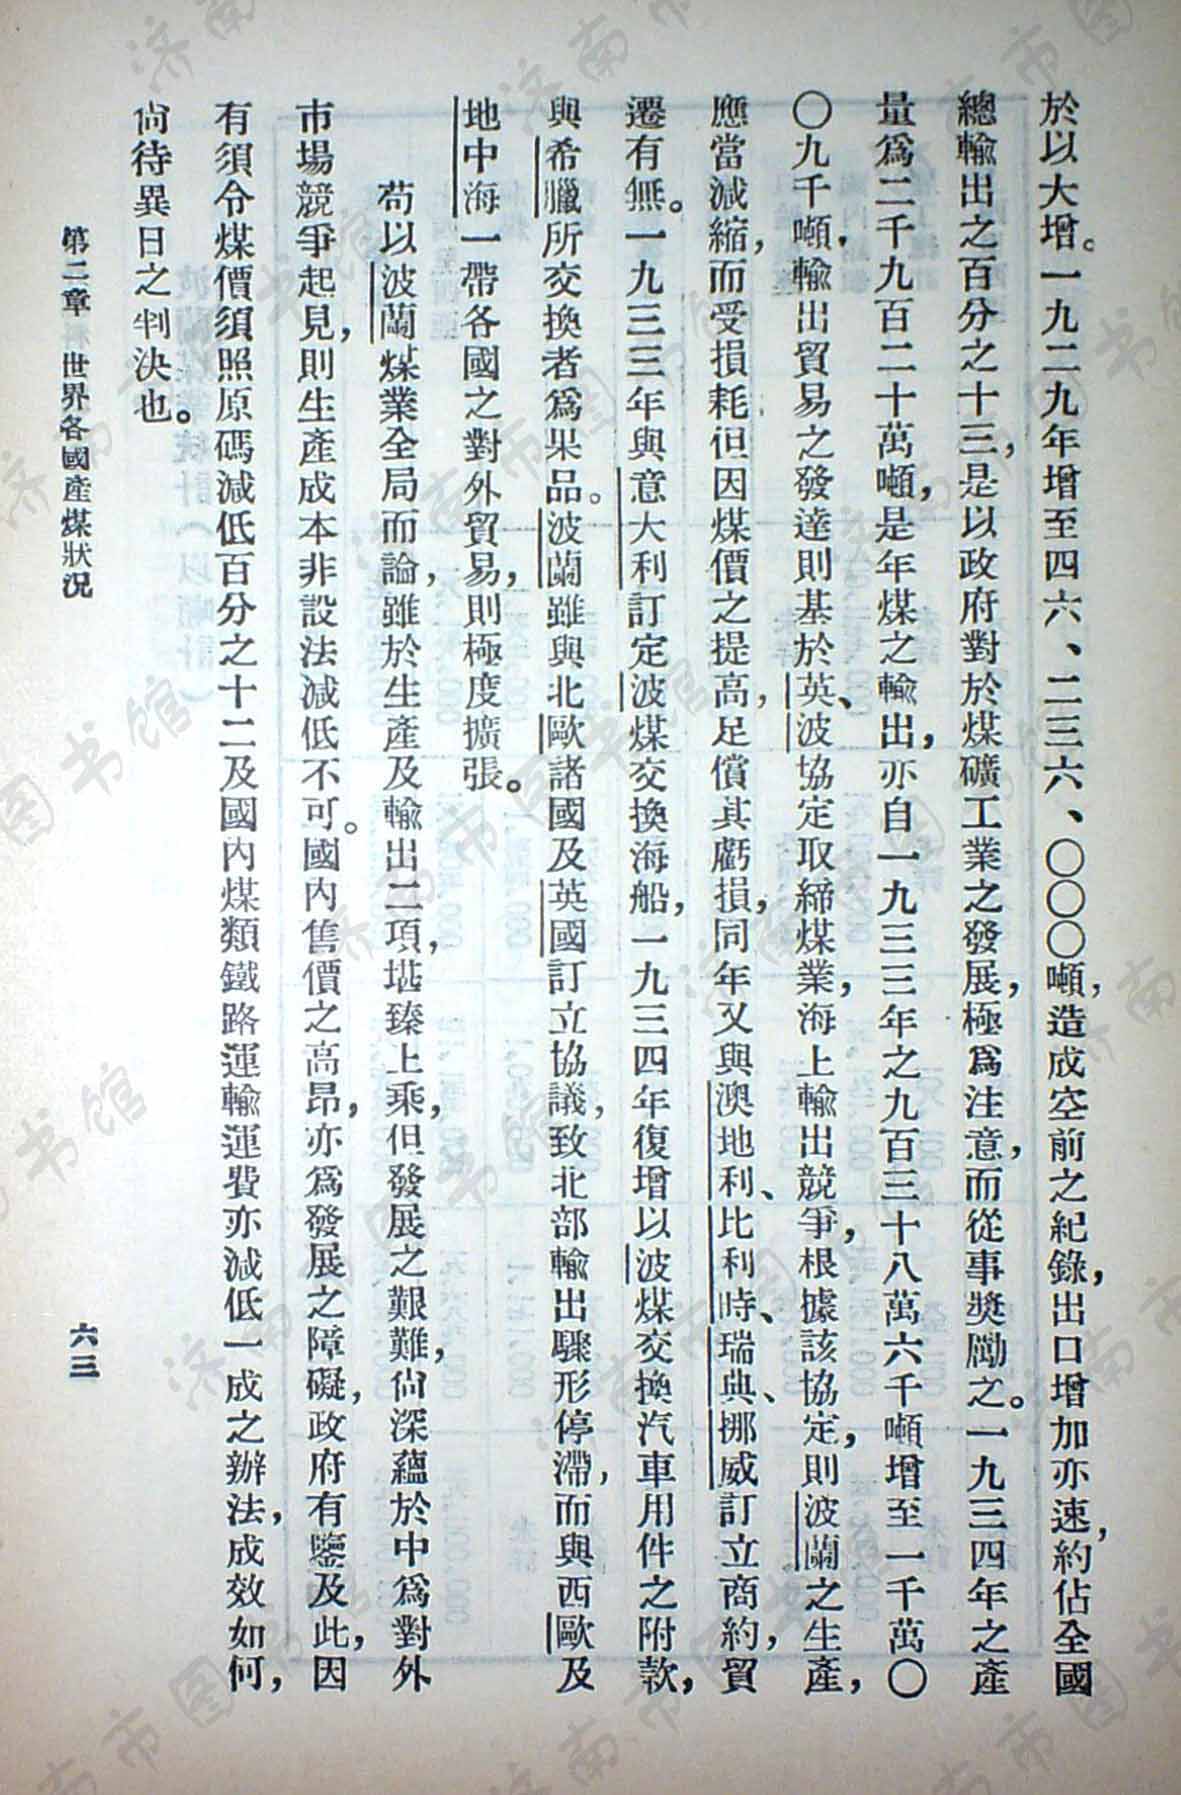 於以大增。一九二九年增至四六、二三六、〇〇〇噸，造成空前之紀錄，出口增加亦速，約佔全國
總輸出之百分之十三，是以政府對於煤礦工業之發展，極爲注意，而從事獎勵之。一九三四年之產
量爲二千九百二十萬噸，是年煤之輸出，亦自一九三三年之九百三十八萬六千噸增至一千萬〇
〇九千噸，輸出貿易之發達則基於英、波協定取締煤業，海上輸出競爭，根據該協定，則波蘭之生產，
應當減縮，而受損耗，但因煤價之提高，足償其虧損，同年又與澳地利、比利時、瑞典、挪威訂立商約，貿
遷有無。一九三三年與意大利訂定波煤交換海船，一九三四年復增以波煤交換汽車用件之附款，
與希臘所交換者爲果品。波蘭雖與北歐諸國及英國訂立協議，致北部輸出驟形停滯，而與西歐及
地中海一帶各國之對外貿易，則極度擴張。
苟以波蘭煤業全局而論，雖於生產及輸出二項，堪臻上乘，但發展之艱難，尙深蘊於中爲對外
市場競爭起見，則生產成本非設法減低不可。國內售價之高昂，亦爲發展之障礙，政府有鑒及此，因
有須令煤價須照原碼減低百分之十二及國內煤類鐵路運輸運費亦減低一成之辦法，成效如何，
尙待異日之判決也。
第二章 世界各國產煤狀況
六三
济南市图书馆